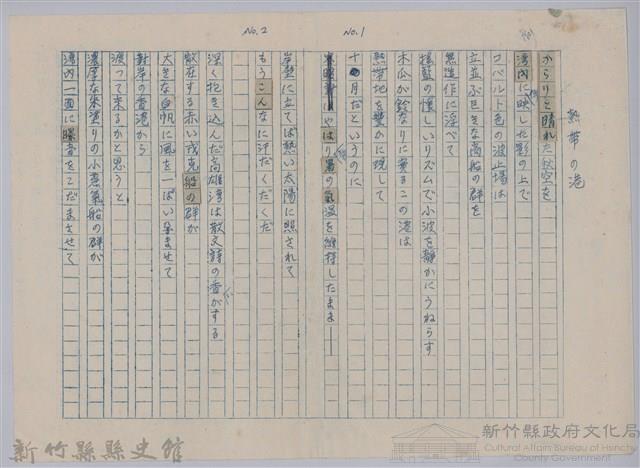 No.1
熱帯の港
からりと晴れた秋空を
湾内に映した影の上で
コバルト色の波止場は
立並ぶ巨きな商船の群を
無造作に浮べて
揺籃の懐しいリズムで小波を静かにうねらす
木瓜が鈴なりに実るこの港は
熱帯地を豊かに現して
十月だというのに
やはり暑の氣温を維持したまま——
No.2
岸壁に立てば熱い太陽に照されて
もうこんなに汗だくだく
深く抱き込んだ高雄湾は散文詩の香がする
散在する赤い戎克船の群が
大きな白帆に風を一ぱい孕ませて
對岸の香港から
渡って来るかと思うと
濃厚な朱塗りの小蒸氣船の群が
湾内一面に爆音をこだまさせて
新竹縣縣史館
新竹縣政府文化局
Cultural Affairs Bureau of Hsinchu
County Government